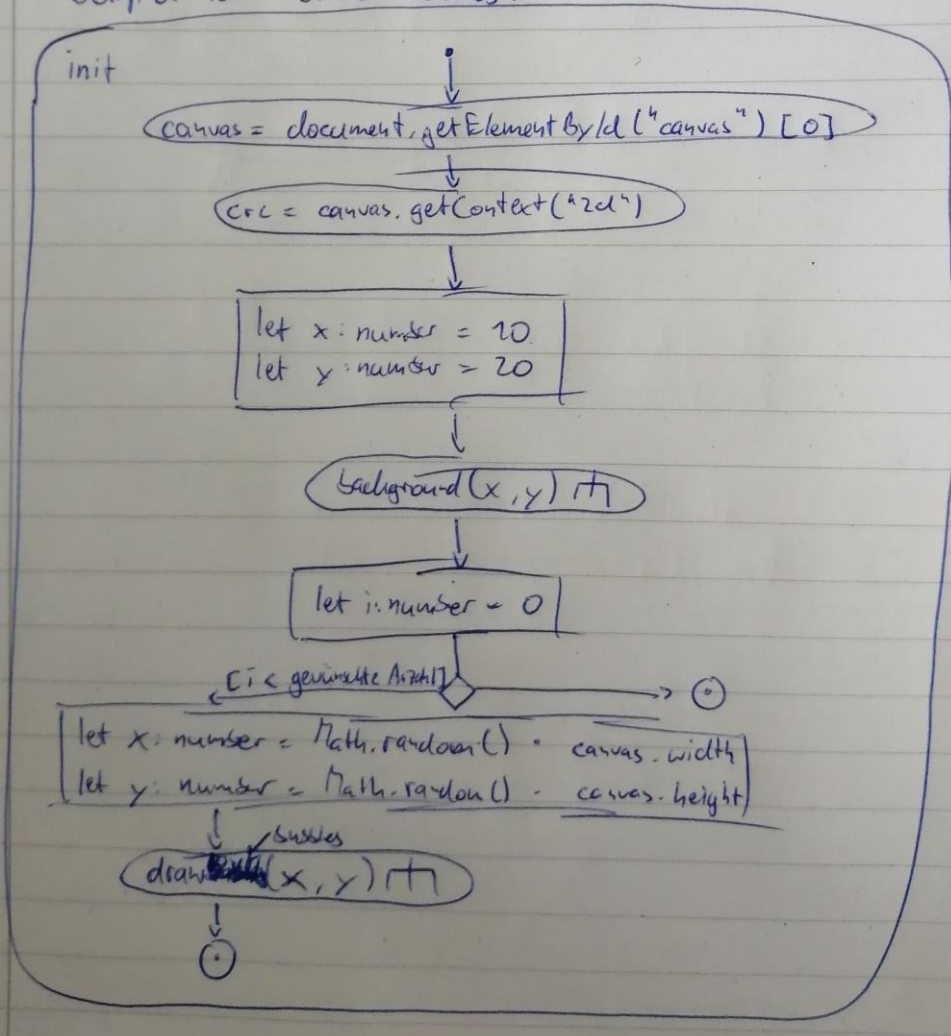 init
canvas = document.getElementById("canvas") [0]
crc = canvas.getContext("2d")
let x: number = 10
let y: number = 20
background(x, y)
let i: number = 0
[i < gewünschte Anzahl]
let x: number = Math.random() · canvas.width
let y: number = Math.random() · canvas.height
bubbles
draw (x, y)